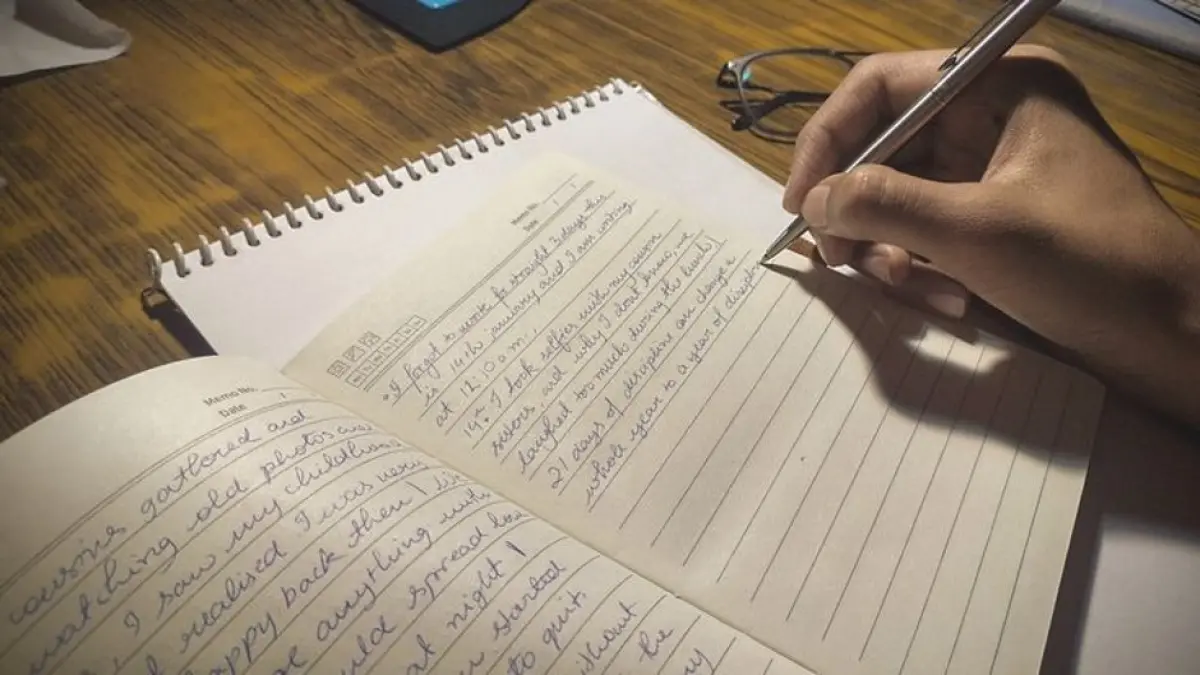 Memo No.
Date
cousins gathered and
watching old photos and
I saw my childhood
realised I was very
happy back then!
anything with
spread
at night!
started
to quit.
the
Memo No.
Date
I forgot to wrote for straight 3 days this
is 14th january and I am writing
at 12:10 a.m.
I took selfies with my cousin
sisters and why I dont know, we
laughed too much during the
21 days of discipline can change a
whole year to a year of